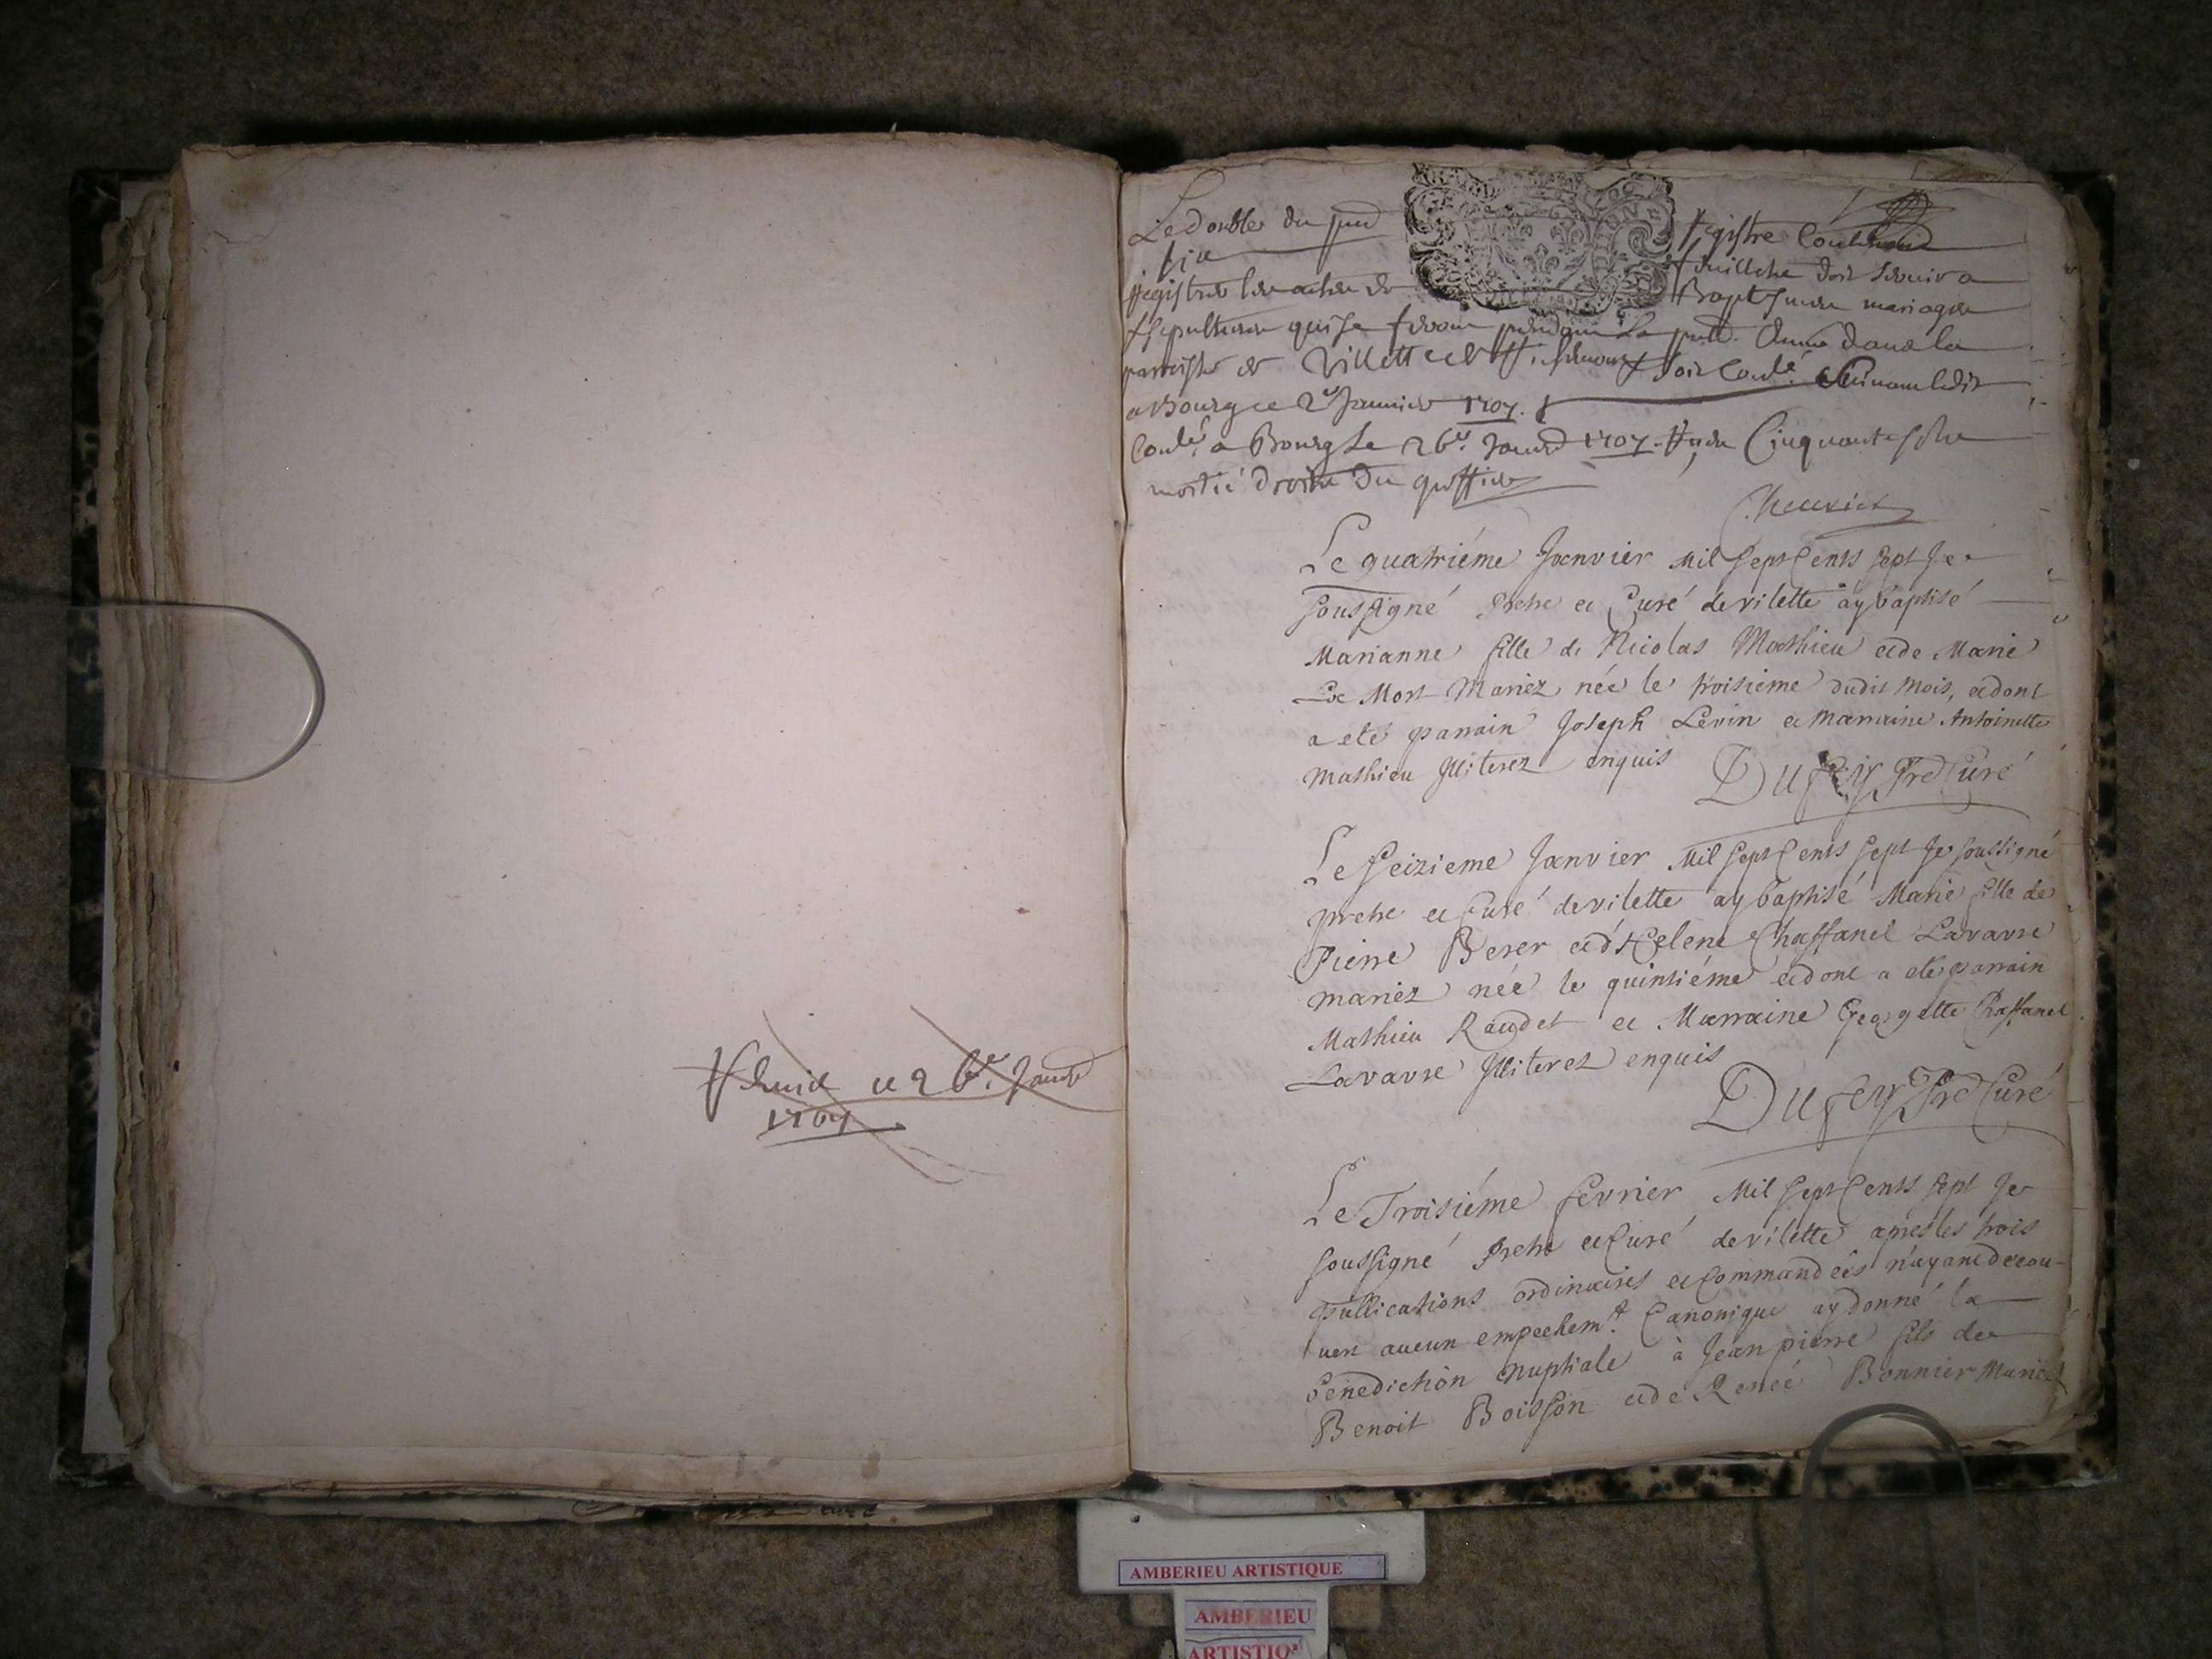 Le double du pnt
six
registre les actes de
registre Contenant
feuillets doit servir a
Baptesmes mariages
sepultures qui se feront pendant la pnte. Année dans la
parroisse de Villette
a Bourg ce 2e Janvier 1707.
a Bourg le 26e. Janvr 1707. Cinquante sols
moitié droits du greffier
Le quatriéme Janvier Mil Sept Cents Sept Je
soussigné Prêtre et Curé de vilette ay baptisé
Marianne fille de Nicolas Mathieu et de Marie
La Mort Mariez née le troisieme dudit mois, et dont
a eté parrain Joseph Levin et marraine Antoinette
Mathieu Illiterez enquis Dufey Pre Curé
Le Seizieme Janvier Mil Sept Cents Sept Je soussigné
pretre et Curé de vilette ay baptisé Marie fille de
Pierre Berer et d'Helene Chaffanel Lavavre
mariez née le quinsiéme et dont a eté parrain
Mathieu Raudet et Marraine Georgette Chaffanel
Lavavre Illiterez enquis
Dufey Pre Curé
Le Troisiéme fevrier Mil Sept Cents Sept Je
soussigné Pretre et Curé de vilette apres les trois
publications ordinaires et Commandées n'ayant decou-
vert aucun empechemt. Canonique ay donné la
benediction nuptiale à Jean pierre fils de
Benoit Boisson et de Renée Bonnier Mariez
ce 26e. Janvr
1707
AMBERIEU ARTISTIQUE
AMBERIEU
ARTISTIQ